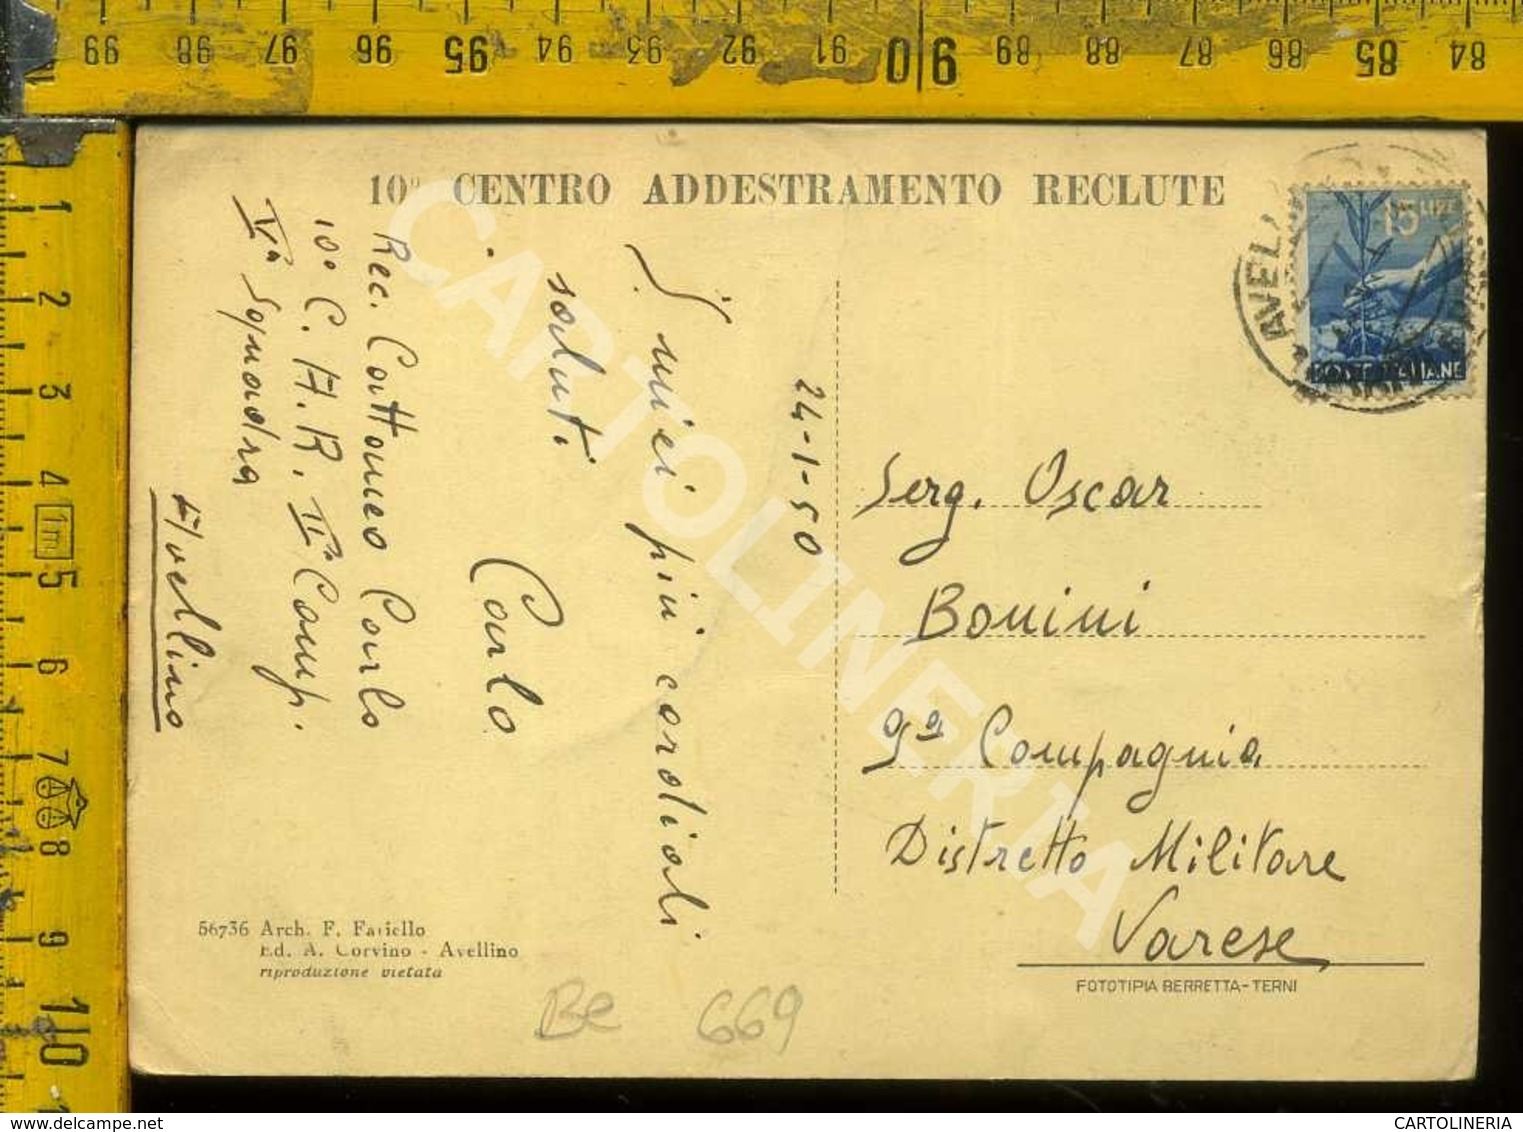 99 98 97 96 95 94 93 92 91 90 89 88 87 86 85 84
1
2
3
4
1m
5
6
7
8
9
10
10° CENTRO ADDESTRAMENTO RECLUTE
15 LIRE
POSTE ITALIANE
24-1-50
I miei più cordiali
saluti
Carlo
Rec. Cattaneo Carlo
10° C.A.R. IIª Comp.
Vª Squadra
Avellino
Serg. Oscar
Bonini
9ª Compagnia
Distretto Militare
Varese
56736 Arch. F. Fariello
Ed. A. Corvino - Avellino
riproduzione vietata
FOTOTIPIA BERRETTA-TERNI
Be 669
CARTOLINERIA
CARTOLINERIA